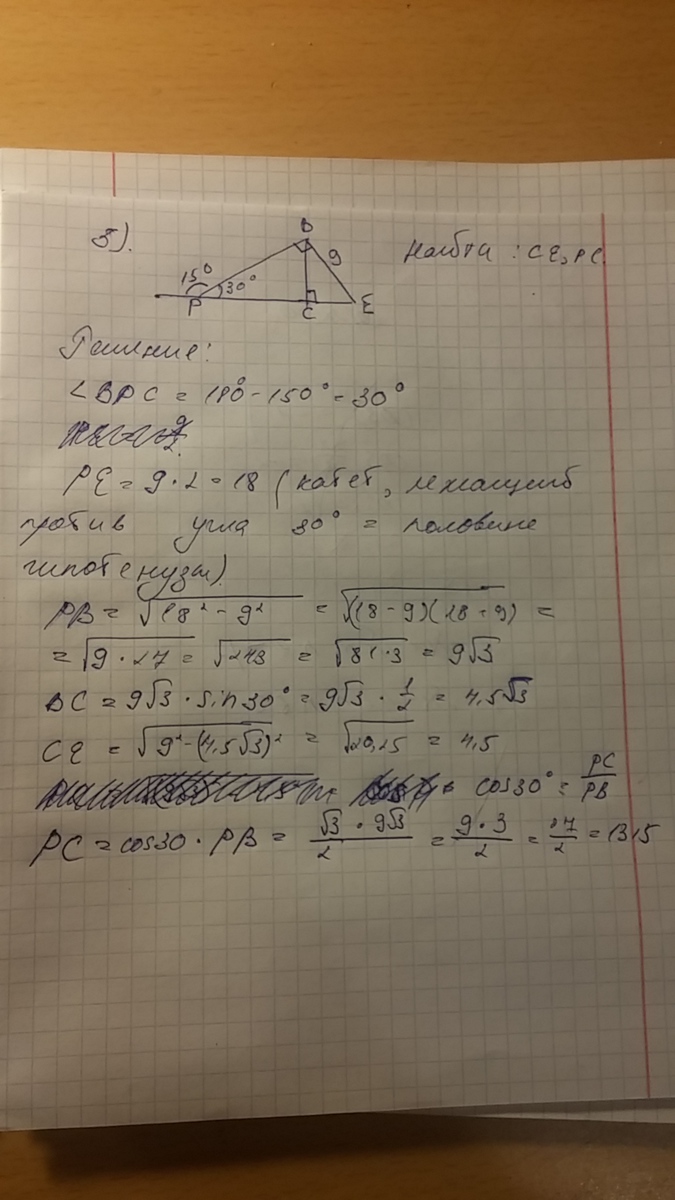 5).
B
9
150°
30°
P
C
E
Найти : CE, PC
Решение:
∠BPC = 180° - 150° = 30°
PE = 9 · 2 = 18 (катет, лежащий
против угла 30° = половине
гипотенузы).
PB = √(18² - 9²) = √((18 - 9)(18 + 9)) =
= √(9 · 27) = √243 = √(81 · 3) = 9√3
BC = 9√3 · sin30° = 9√3 · 1/2 = 4,5√3
CE = √(9² - (4,5√3)²) = √20,25 = 4,5
cos30° = PC/PB
PC = cos30 · PB = √3 · 9√3/2 = 9 · 3/2 = 27/2 = 13,5